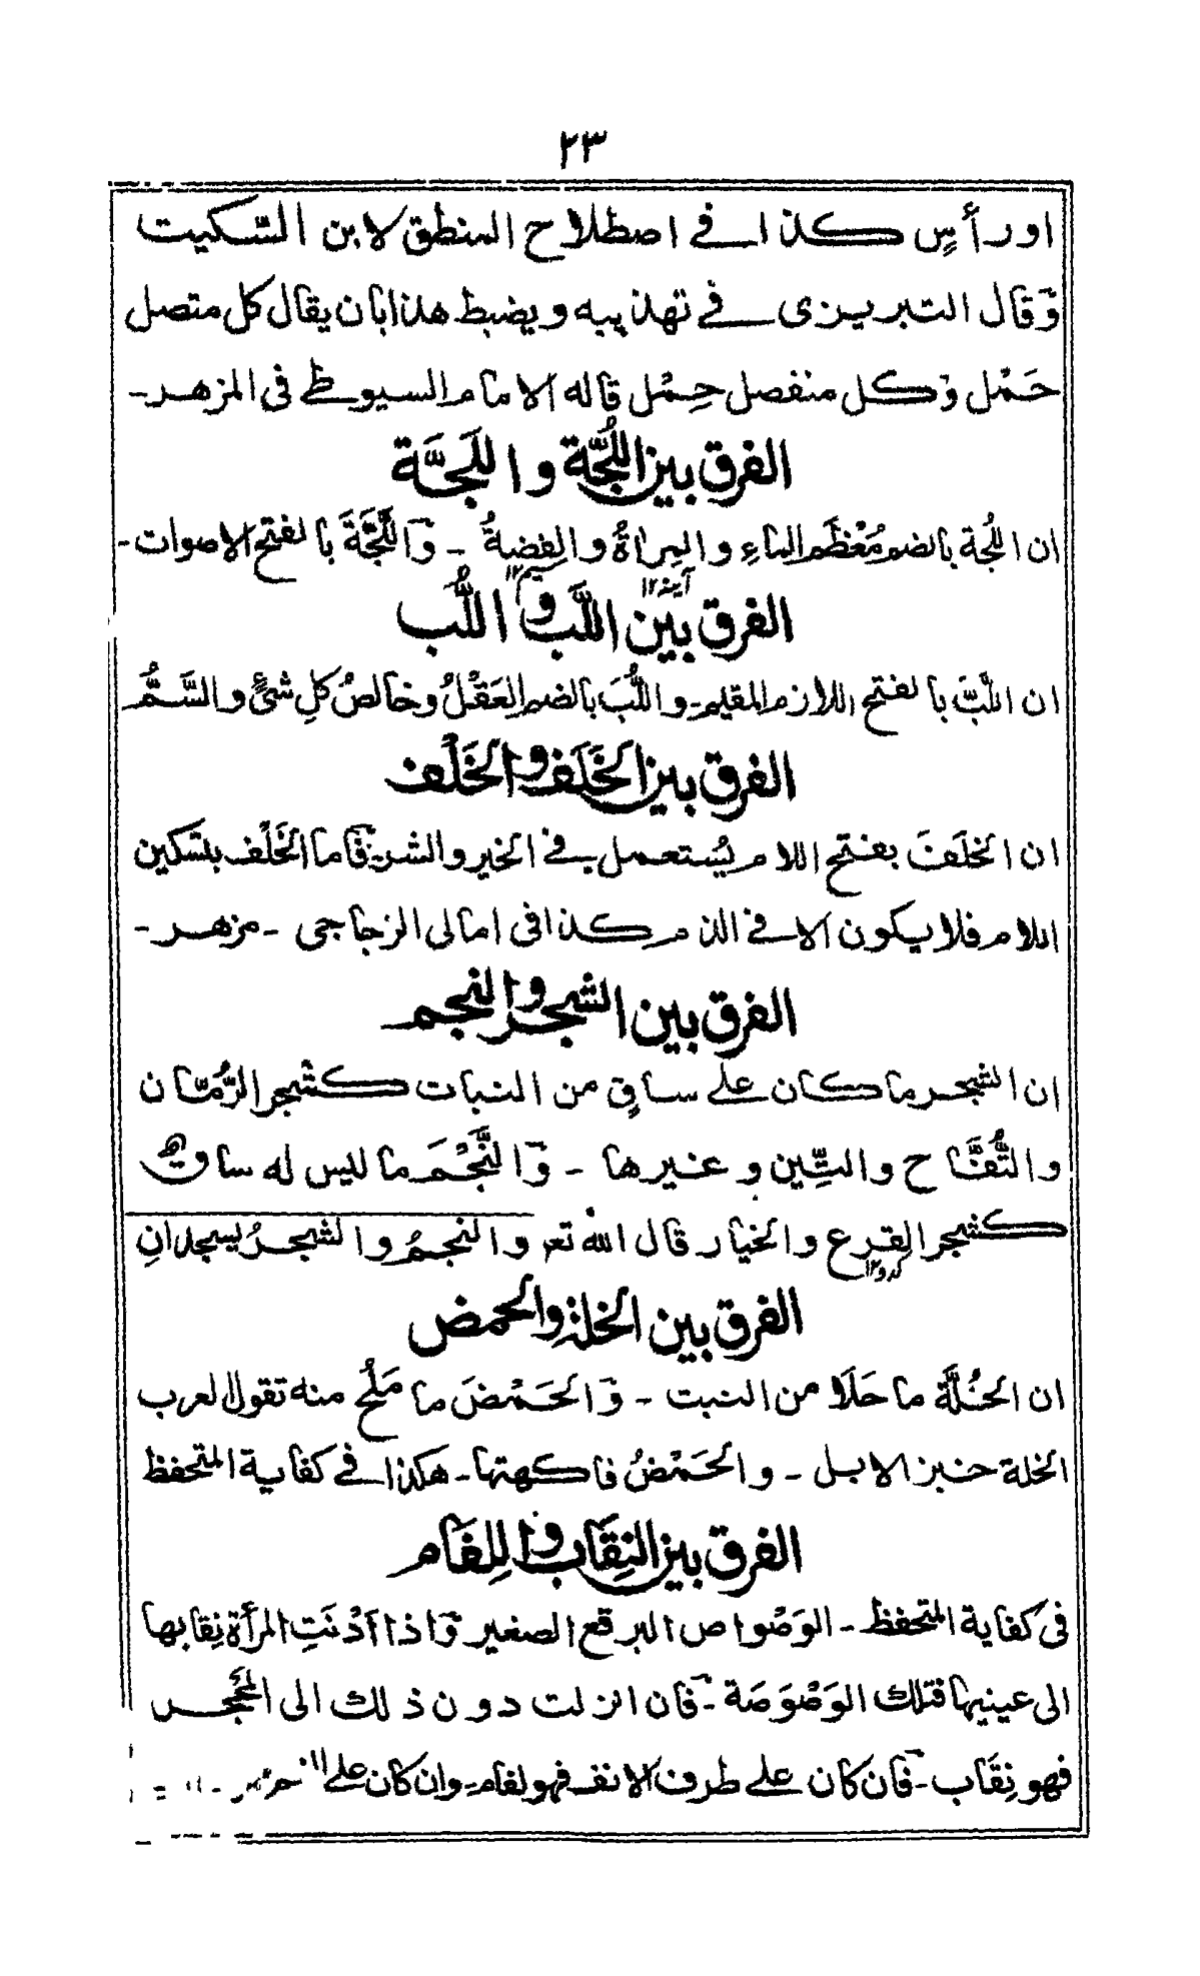 ٢٣
اورأسٍ كذا في اصطلاح المنطق لابن السّكيت
وَقال التبريزى في تهذيبه ويضبط هذا بان يقال كل متصل
حَمْل وَكل منفصل حِمْل قاله الامام السيوطي فى المزهر-
الفرق بين اللُّجّة واللَجَّة
ان اللُجة بالضم مُعْظَم الماءِ والمِراةُ والفضةُ - وَاللَّجَّةَ بالفتح الاصوات-
آينه١٢ سيم١٢
الفرق بَيْن اللَّب واللُّب
ان اللَّبَّ بالفتح اللازم المقيم- واللُّبَ بالضم العَقْلُ وخالصُ كلِ شئٍ والسَّمُّ
الفرق بين الخَلَف والخَلْف
ان الخلَفَ بفتح اللام يُستعمل في الخير والشر- فَاما الخَلْف بتسكين
اللام فلا يكون الا في الذم كذا فى امالى الزجاجى - مزهر-
الفرق بين الشجر والنجم
ان الشجر ما كان علے ساقٍ من النبات كشجر الرُّمّان
والتُّفَّاح والتِّين وغيرها - وَالنَّجْمَ ما ليس له ساق
كشجر القرع والخيار قال الله تعـ والنجمُ والشجرُ يسجدانِ
كدو١٢
الفرق بين الخلة والحمض
ان الخُلَّة ما حَلَا من النبت - وَالحَمْضَ ما مَلُح منه تقول العرب
الخلة خبز الابل - والحَمْضُ فاكهتها- هكذا في كفاية المتحفظ
الفرق بين النِقَاب واللِفَام
فى كفاية المتحفظ - الوَصْواص البرقع الصغير وَاذا اَدْنَتِ المرأة نِقابها
الى عينيها فتلك الوَصْوَصَة - فَان انزلت دون ذلك الى المَحْجر
فهو نِقَاب - فَان كان علے طرف الانف فهو لفام- وان كان علے